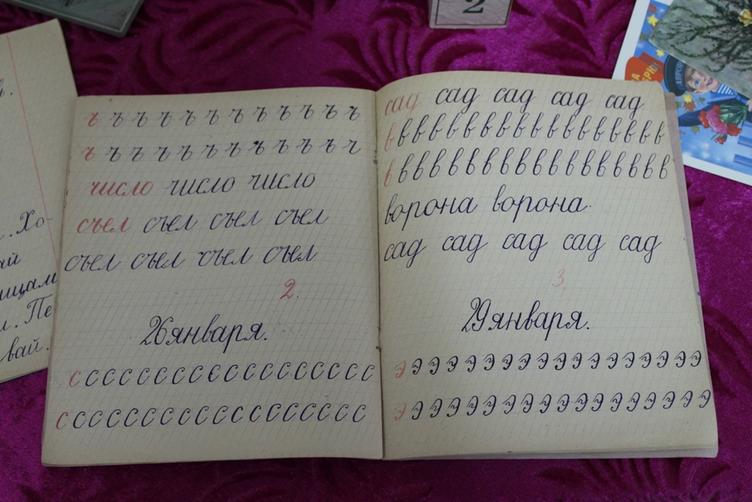 2
Хо-
ай
ицам
Пе
вай.
ъ ъ ъ ъ ъ ъ ъ ъ ъ ъ ъ ъ
ъ ъ ъ ъ ъ ъ ъ ъ ъ ъ ъ ъ
число число число
съел съел съел съел
съел съел съел съел
2.
26 января.
с с с с с с с с с с с с с с с с с с
с с с с с с с с с с с с с с с с с с
сад сад сад сад сад
в в в в в в в в в в в в в в в в в в
в в в в в в в в в в в в в в в в в в
ворона ворона.
сад сад сад сад сад
3.
29 января.
Э Э Э Э Э Э Э Э Э Э Э Э Э Э Э Э Э Э
Э Э Э Э Э Э Э Э Э Э Э Э Э Э Э Э Э Э